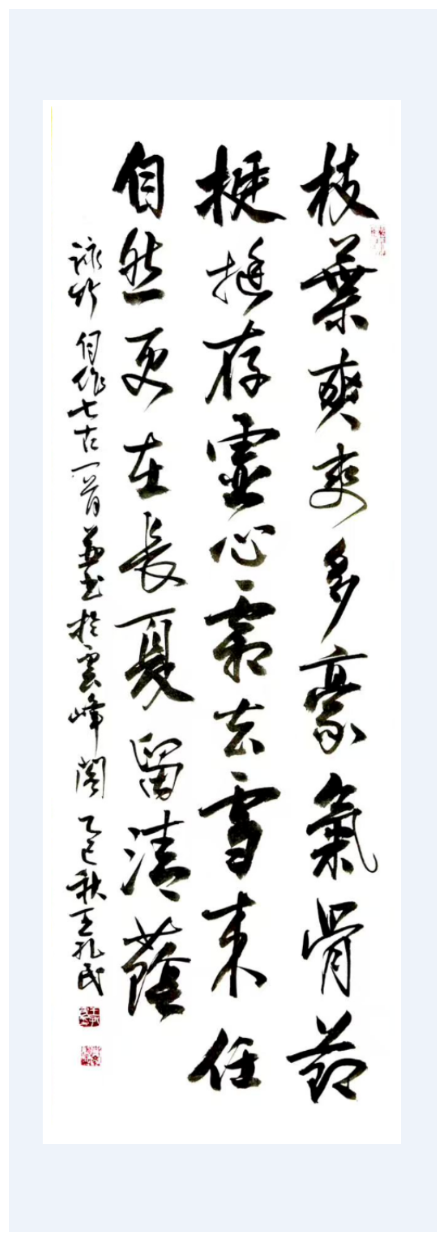 枝葉爽爽多豪氣骨節
挺挺存靈心霜去雪來任
自然更在長夏留清蔭
詠竹自作七古一首並書於雲峰閣乙巳秋王孔民